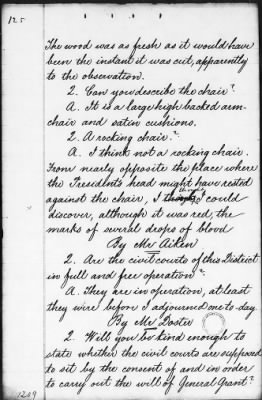 125
The wood was as fresh as it would have
been the instant it was cut, apparently
to the observation.
Q. Can you describe the chair?
A. It is a large high backed arm-
chair and satin cushions.
Q. A rocking chair?
A. I think not a rocking chair.
From nearly opposite the place where
the President's head might have rested
against the chair, I thought I could
discover, although it was red, the
marks of several drops of blood
By Mr Aiken
Q. Are the civil courts of this District
in full and free operation?
A. They are in operation, at least
they were before I adjourned one to-day.
By Mr Doster
Q. Will you be kind enough to
state whether the civil courts are supposed
to sit by the consent of and in order
to carry out the will of General Grant?
1209